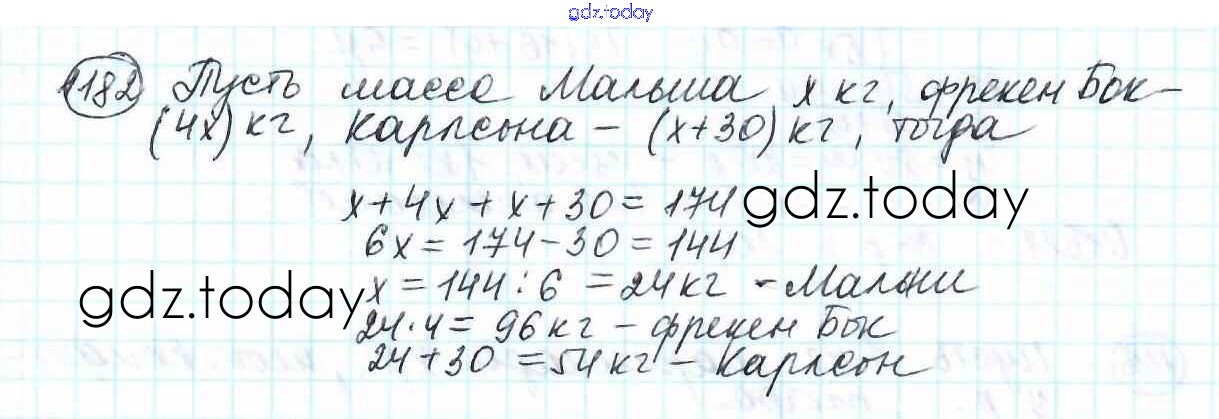 gdz.today
1182 Пусть масса Малыша x кг, фрекен Бок -
(4x) кг, Карлсона - (x+30) кг, тогда
x + 4x + x + 30 = 174
gdz.today
6x = 174 - 30 = 144
x = 144 : 6 = 24 кг - Малыш
gdz.today
24 · 4 = 96 кг - фрекен Бок
24 + 30 = 54 кг - Карлсон